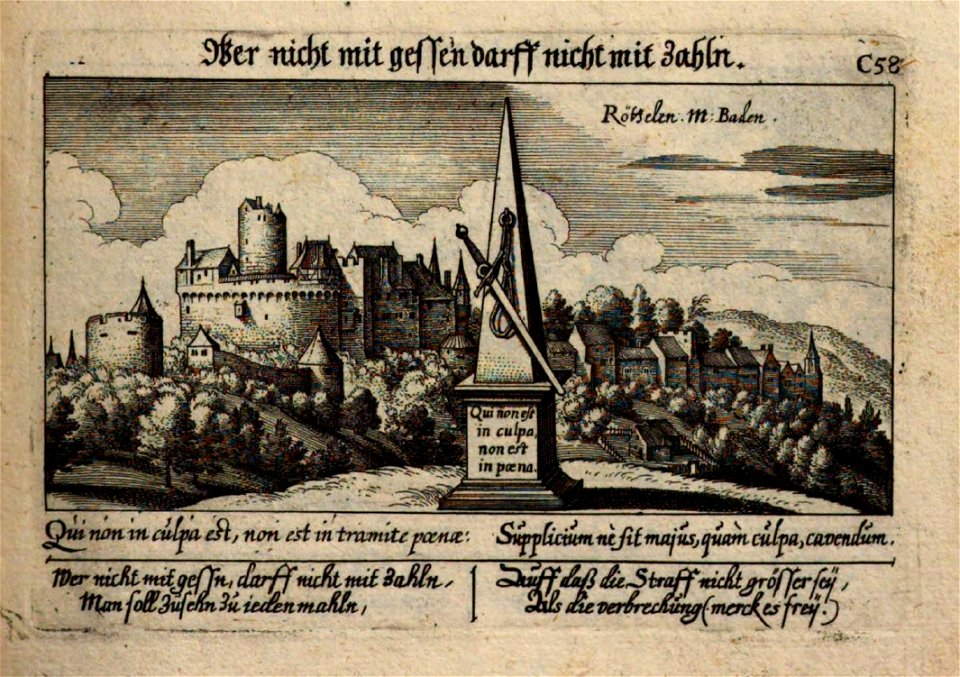 Wer nicht mit gessen darff nicht mit Zahln.
C58
Rötselen. M: Baden.
Qui non est
in culpa,
non est
in pœna.
Qui non in culpa est, non est in tramite pœnæ:
Supplicium nè sit majus, quàm culpa, cavendum.
Wer nicht mit gessn, darff nicht mit Zahln,
Man soll Zusehn Zu ieden mahln,
Auff daß die Straff nicht grösser seÿ,
Als die verbrechung (merck es freÿ.)